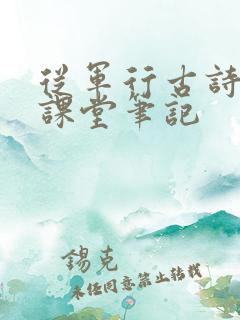 從軍行古詩
課堂筆記
錫克
未经同意禁止转载